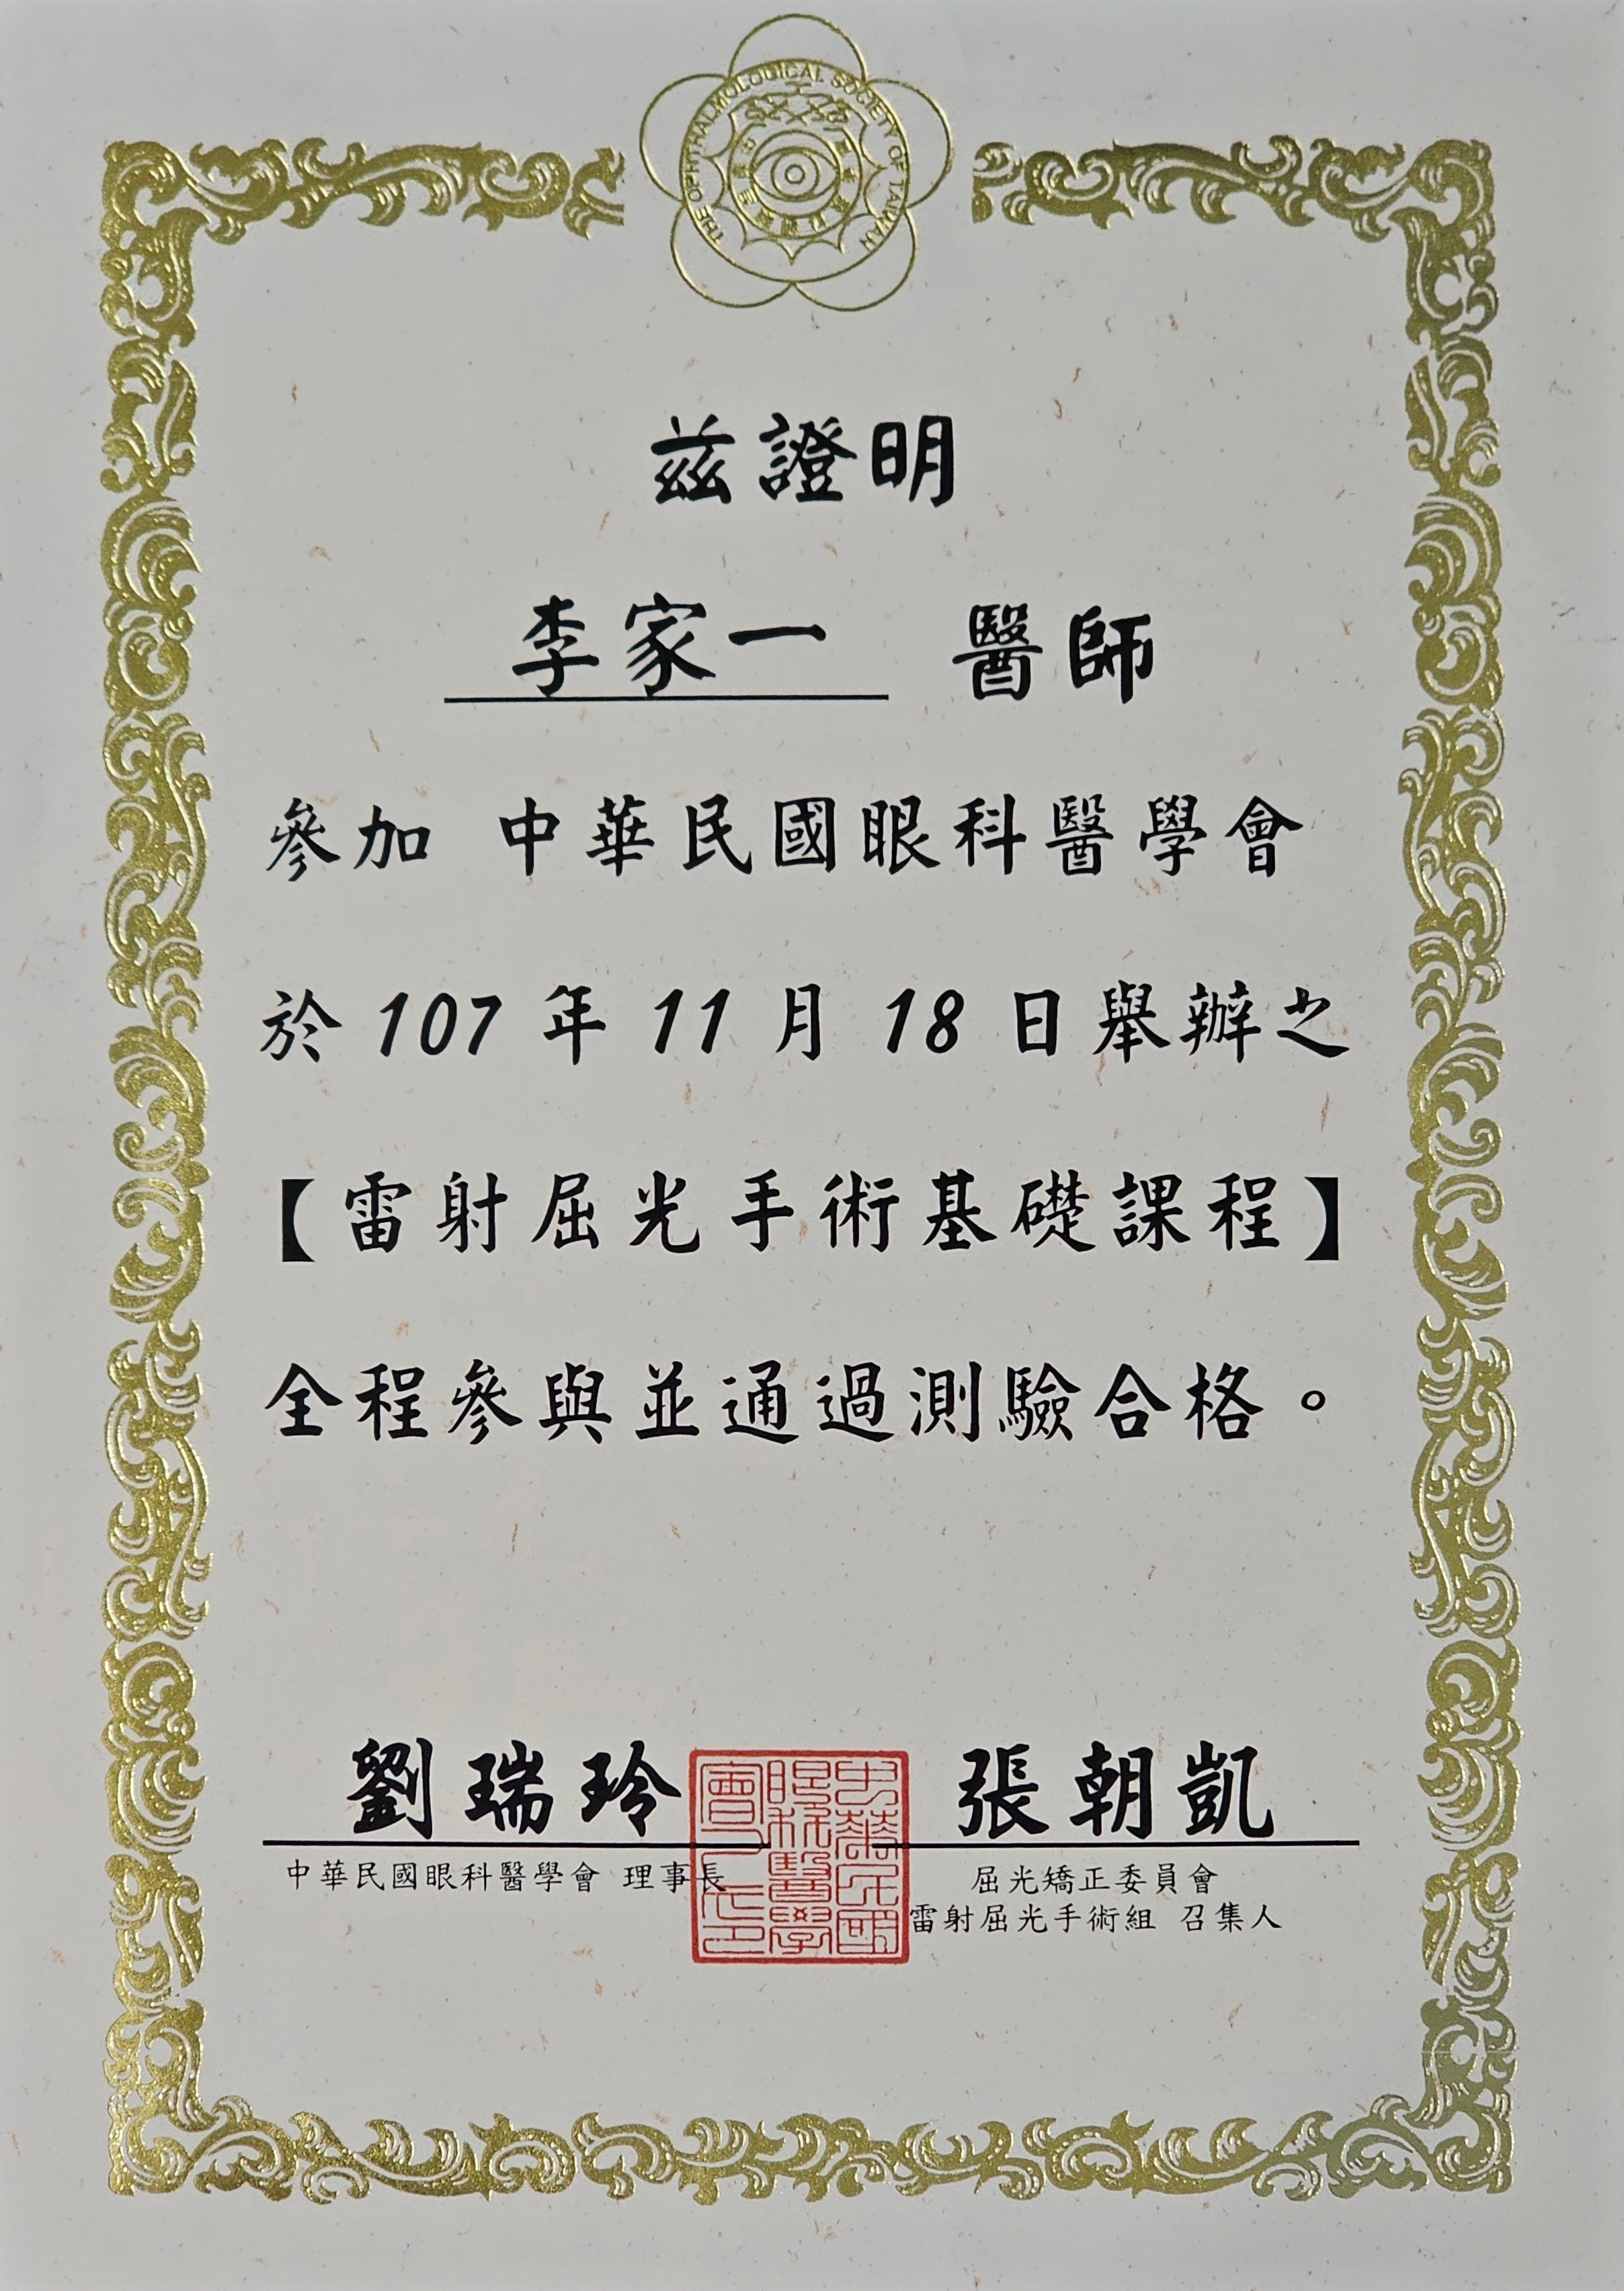 THE OPHTHALMOLOGICAL SOCIETY OF TAIWAN
茲證明
李家一 醫師
參加 中華民國眼科醫學會
於 107 年 11 月 18 日舉辦之
【雷射屈光手術基礎課程】
全程參與並通過測驗合格。
劉瑞玲 張朝凱
中華民國眼科醫學會 理事長
屈光矯正委員會
雷射屈光手術組 召集人
中華民國眼科醫學會之印